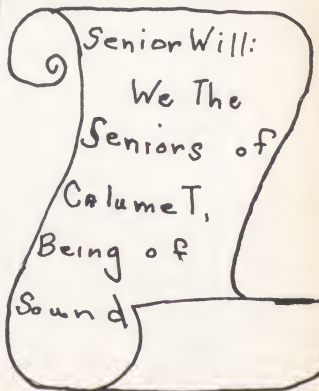 Senior Will:
We The
Seniors of
CalumeT,
Being of
Sound